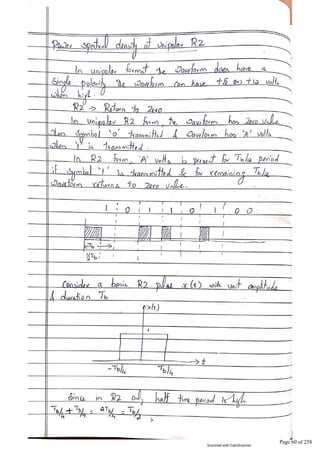 Power spectral density of unipolar RZ
In unipolar format the waveform does have a
single polarity. The waveform can have +5 or +12 volts
when high.
RZ → Return to Zero
In unipolar RZ form, the waveform has zero value
when symbol '0' transmitted & waveform has 'A' volts
when '1' is transmitted.
In RZ form, 'A' volts is present for Tb/2 period
if symbol '1' is transmitted & for remaining Tb/2
waveform returns to zero value.
1 0 1 1 0 1 0 0
Tb
Consider a basic RZ pulse x(t) with unit amplitude
& duration Tb
x(t)
1
t
-Tb/4 Tb/4
Since in RZ only half time period is high
Tb/4 + Tb/4 = 2Tb/4 = Tb/2
Scanned with CamScanner
Page 80 of 258